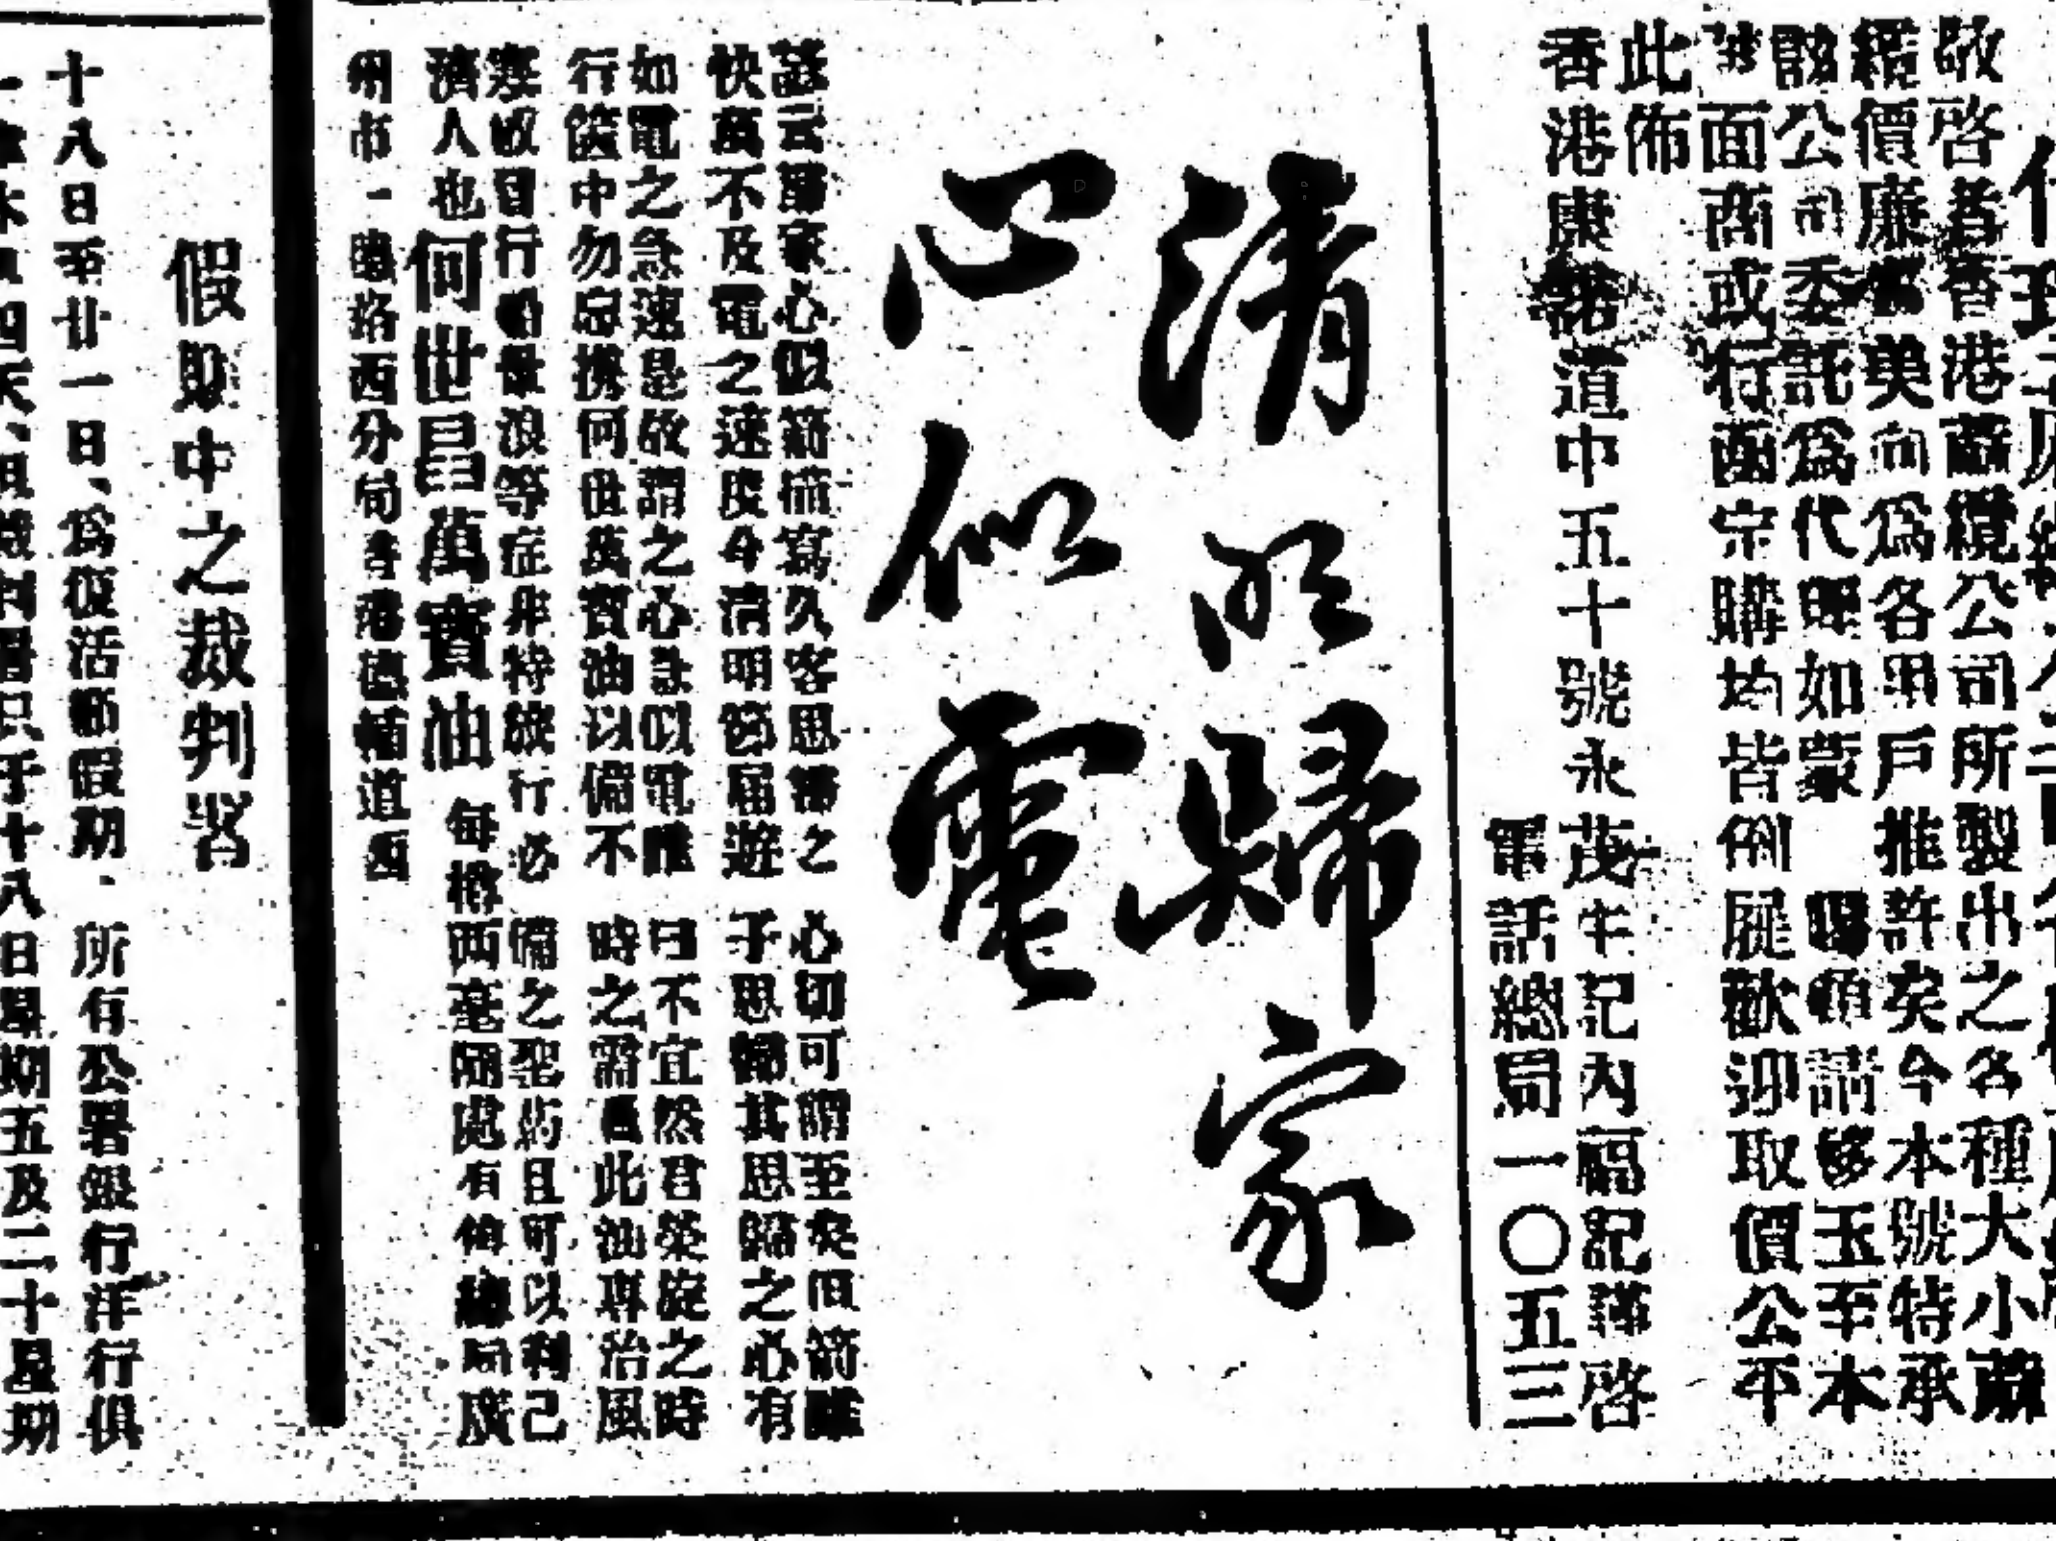 敬啓者香港蔴纜公司所製出之名種大小蔴
纜價廉物美向為各界用戶推許矣今本號特承
該公司委託為代理如蒙 賜顧請移玉至本
號面商或行函定購均皆例展歡迎取價公平
此佈
香港康諾道中五十號永茂生記內福記謹啓
電話總局一〇五三
清明歸家
心似電
諺云歸家心似箭描寫久客思歸之心切可謂至矣但箭雖
快萬不及電之速度今清明節屆遊子思歸其思歸之心有
如電之急速是故謂之心似電誰曰不宜然君榮旋之時
行篋中勿忘携何世萬寳油以備不時之需此油專治風
寒咳冒行船暈浪等症非特旅行必備之聖药且可以利己
濟人也何世昌萬寳油每樽両毫隨處有售總局廣
州市一德路西分局香港德輔道西
假期中之裁判署
十八日至廿一日、為復活節假期．所有公署銀行洋行俱
十八日星期五及二十星期